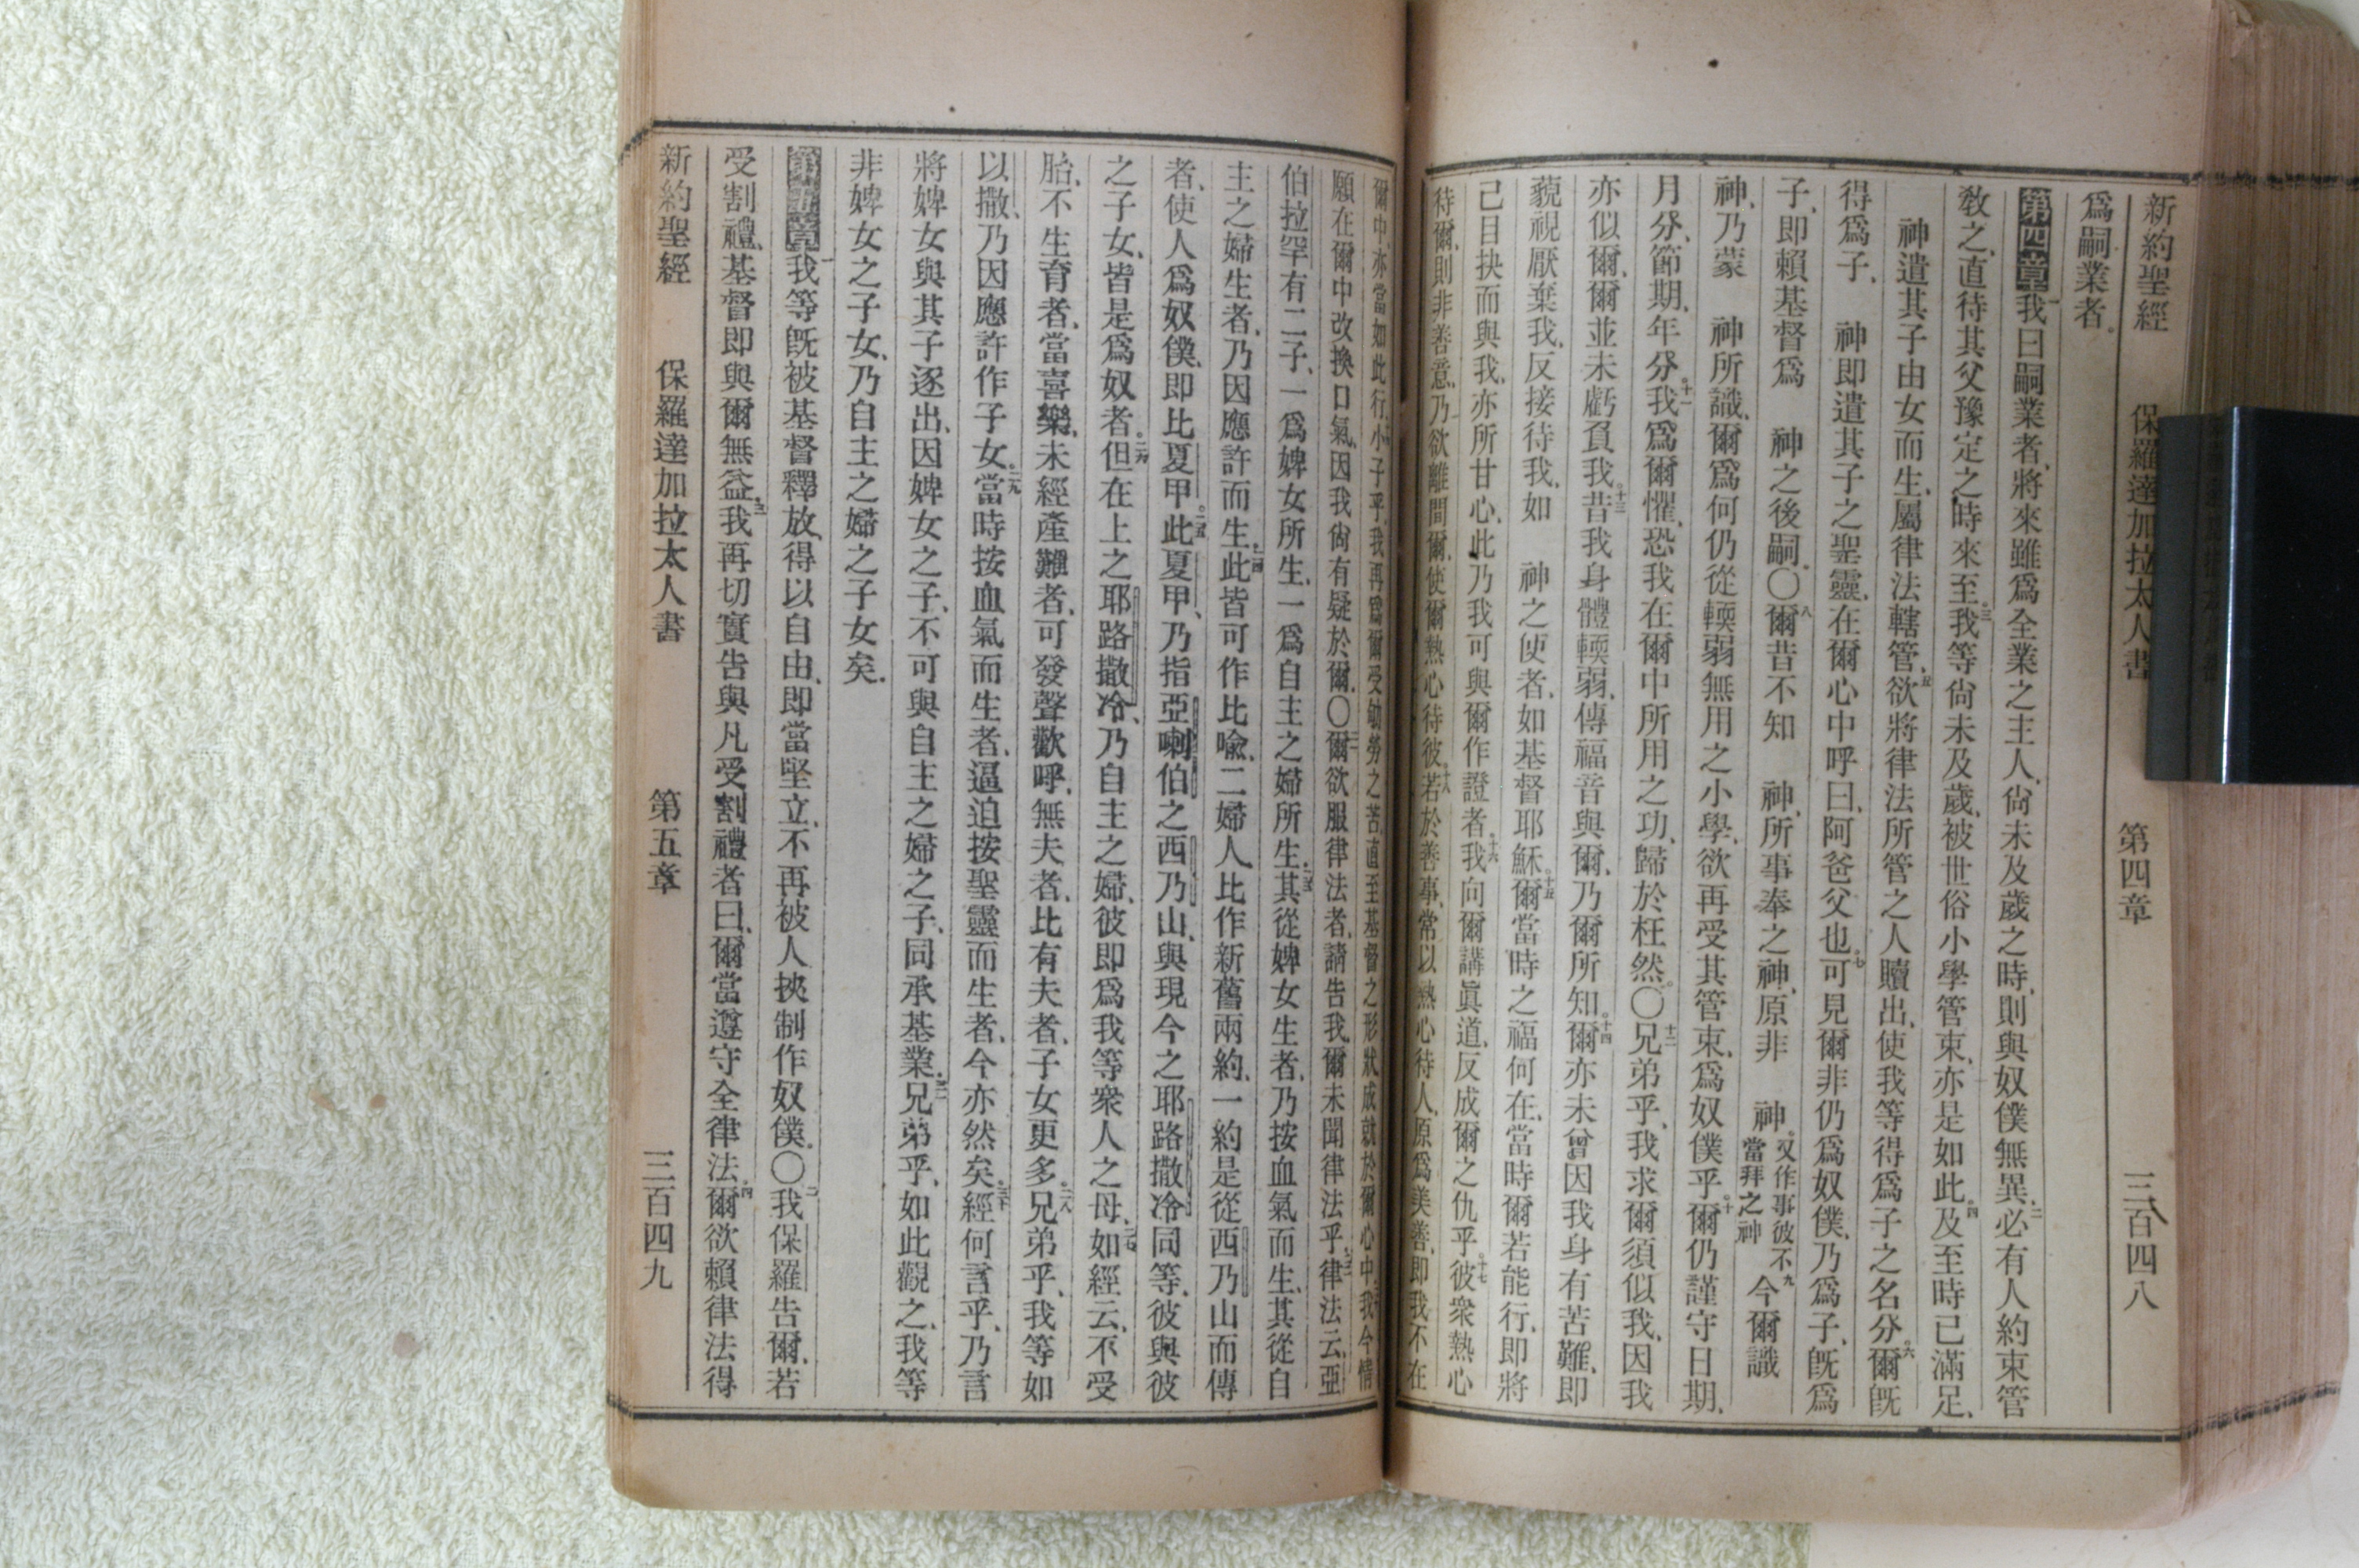 新約聖經 保羅達加拉太人書 第四章 三百四八
爲嗣業者。
第四章 一我曰嗣業者、將來雖爲全業之主人、尙未及歲之時、則與奴僕無異、二必有人約束管
敎之、直待其父豫定之時來至。三我等尙未及歲、被世俗小學管束、亦是如此。四及至時已滿足、
神遣其子由女而生、屬律法轄管、五欲將律法所管之人贖出、使我等得爲子之名分。六爾旣
得爲子、 神卽遣其子之聖靈、在爾心中呼曰、阿爸父也。七可見爾非仍爲奴僕、乃爲子、旣爲
子、卽賴基督爲 神之後嗣。〇八爾昔不知 神、所事奉之神、原非 神。又作事彼不當拜之神 九今爾識
神、乃蒙 神所識、爾爲何仍從輭弱無用之小學、欲再受其管束、爲奴僕乎。十爾仍謹守日期、
月分、節期、年分。十一我爲爾懼、恐我在爾中所用之功、歸於枉然。〇十二兄弟乎、我求爾須似我、因我
亦似爾、爾並未虧負我。十三昔我身體輭弱、傳福音與爾、乃爾所知。十四爾亦未曾因我身有苦難、卽
藐視厭棄我、反接待我、如 神之使者、如基督耶穌。十五爾當時之福何在、當時爾若能行、卽將
己目抉而與我、亦所甘心、此乃我可與爾作證者。十六我向爾講眞道、反成爾之仇乎。十七彼衆熱心
待爾、則非善意、乃欲離間爾、使爾熱心待彼。十八若於善事、常以熱心待人、原爲美善、卽我不在
爾中、亦當如此行。小子乎、我再爲爾受劬勞之苦、直至基督之形狀成就於爾心中。我今情
願在爾中改換口氣、因我尙有疑於爾。〇爾欲服律法者、請告我、爾未聞律法乎。律法云、亞
伯拉罕有二子、一爲婢女所生、一爲自主之婦所生。其從婢女生者、乃按血氣而生、其從自
主之婦生者、乃因應許而生。二四此皆可作比喩、二婦人比作新舊兩約、一約是從西乃山而傳
者、使人爲奴僕、卽比夏甲。二五此夏甲、乃指亞喇伯之西乃山、與現今之耶路撒冷同等、彼與彼
之子女、皆是爲奴者。二六但在上之耶路撒冷、乃自主之婦、彼卽爲我等衆人之母。二七如經云、不受
胎、不生育者、當喜樂、未經產難者、可發聲歡呼、無夫者、比有夫者、子女更多。二八兄弟乎、我等如
以撒、乃因應許作子女。二九當時按血氣而生者、逼迫按聖靈而生者、今亦然矣。三十經何言乎、乃言
將婢女與其子逐出、因婢女之子、不可與自主之婦之子、同承基業。三一兄弟乎、如此觀之、我等
非婢女之子女、乃自主之婦之子女矣。
第五章 一我等旣被基督釋放、得以自由、卽當堅立、不再被人挾制作奴僕。〇二我保羅告爾、若
受割禮、基督卽與爾無益。三我再切實吿與凡受割禮者曰、爾當遵守全律法。四爾欲賴律法得
新約聖經 保羅達加拉太人書 第五章 三百四九